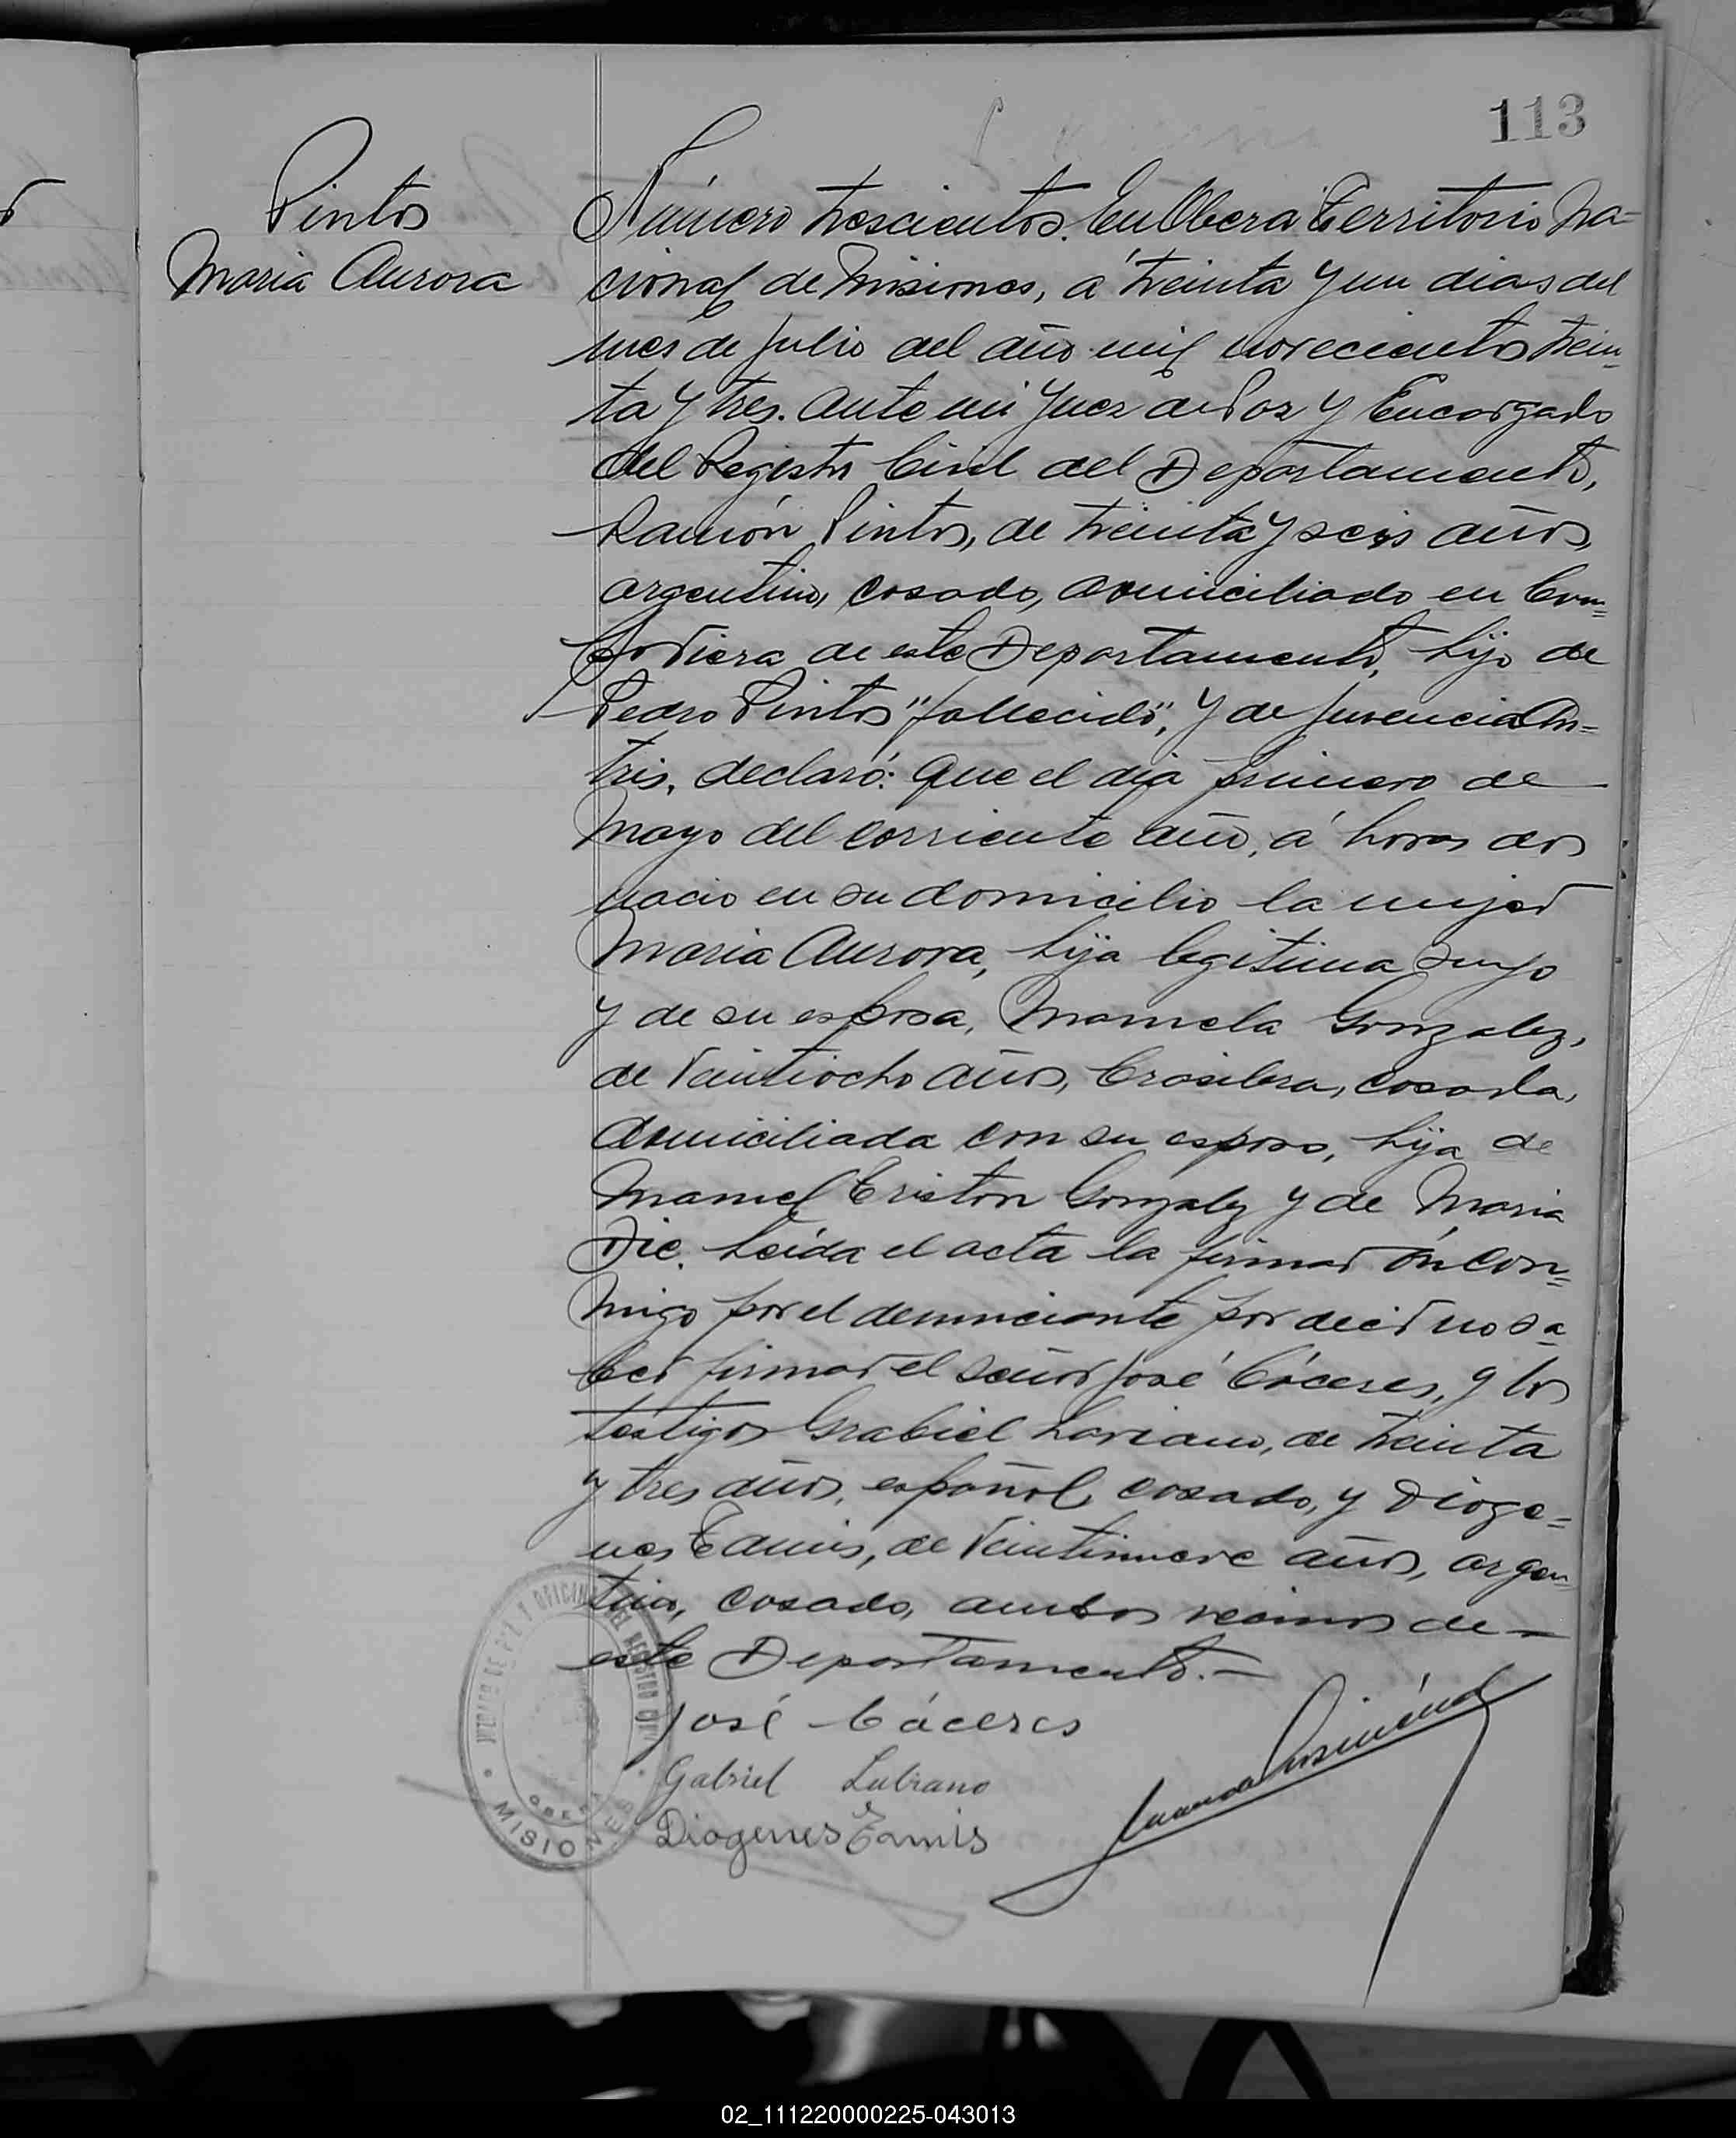 113
Pintos
Maria Aurora
Número trescientos. En Oberá Territorio Na=
cional de Misiones, á treinta y un dias del
mes de Julio del año mil novecientos trein_
ta y tres. Ante mi Juez de Paz y Encargado
del Registro Civil del Departamento,
Ramón Pintos, de treinta y seis años,
argentino, casado, domiciliado en
de este Departamento, hijo de
Pedro Pintos "fallecido", y de Juvencia An=
tris, declaró: Que el dia primero de
Mayo del corriente año, á horas dos
nacio en su domicilio la mujer
Maria Aurora, hija legitima suya
y de su esposa, Manuela Gonzalez,
de veintiocho años, brasilera, casada,
domiciliada con su esposo, hija de
Manuel Gonzalez y de Maria
Dic. Leida el acta la firmarón con=
migo por el denunciante por decir no sa
ber firmar el señor José Cáceres, y los
testigos Grabiel Loriano, de treinta
y tres años, español, casado, y Dioge=
nes Eamis, de veintinueve años, argen_
tino, casado, ambos vecinos de
este Departamento.
José Cáceres
Gabriel Lubiano
Diogenes Eamis
JUZGADO DE PAZ Y OFICINA DEL REGISTRO CIVIL
OBERA
MISIONES
02_111220000225-043013